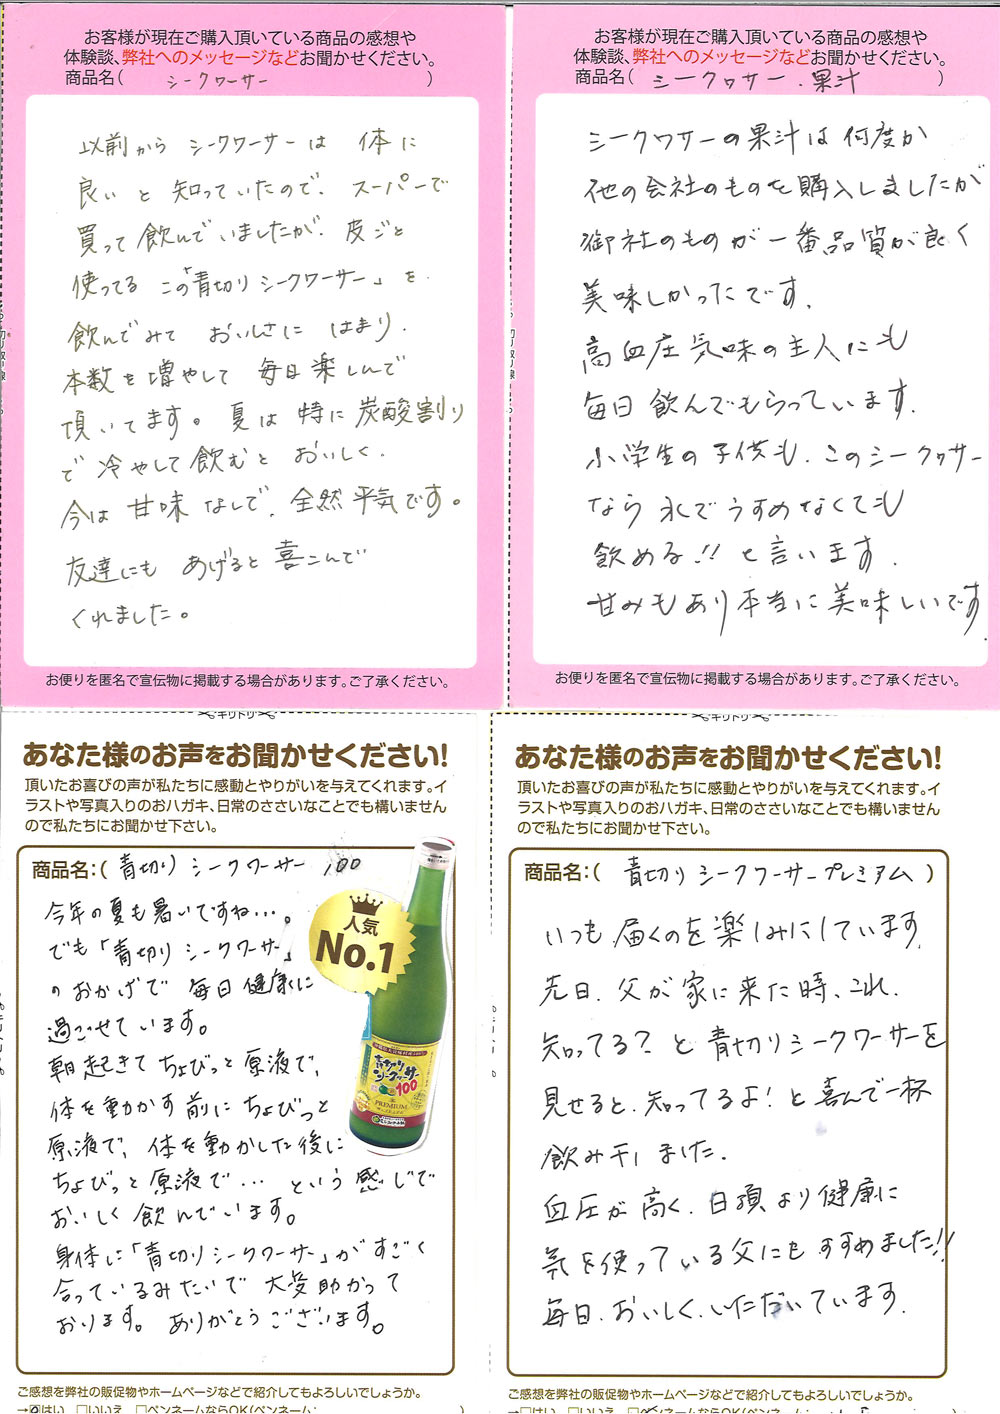 お客様が現在ご購入頂いている商品の感想や
体験談、弊社へのメッセージなどお聞かせください。
商品名( シークワーサー )
以前から シークワーサーは 体に
良い と 知っていたので、スーパーで
買って 飲んでいましたが、皮ごと
使ってる この「青切りシークワーサー」を
飲んでみて おいしさに はまり、
本数を増やして 毎日楽しんで
頂いてます。夏は 特に炭酸割り
で 冷やして飲むと おいしく、
今は 甘味 なしで、全然平気です。
友達にも あげると喜こんで
くれました。
お便りを匿名で宣伝物に掲載する場合があります。ご了承ください。
お客様が現在ご購入頂いている商品の感想や
体験談、弊社へのメッセージなどお聞かせください。
商品名( シークヮサー・果汁 )
シークヮサーの果汁は何度か
他の会社のものを購入しましたが
御社のものが一番品質が良く
美味しかったです。
高血圧気味の主人にも
毎日飲んでもらっています。
小学生の子供も、このシークヮサー
なら 水でうすめなくても
飲める!! と言います。
甘みもあり本当に美味しいです。
お便りを匿名で宣伝物に掲載する場合があります。ご了承ください。
キリトリ
あなた様のお声をお聞かせください!
頂いたお喜びの声が私たちに感動とやりがいを与えてくれます。イ
ラストや写真入りのおハガキ、日常のささいなことでも構いません
ので私たちにお聞かせ下さい。
商品名:( 青切りシークワーサー 100
今年の夏も暑いですね…。
でも「青切りシークワーサー」
のおかげで 毎日健康に
過ごせています。
朝起きてちょびっと原液で、
体を動かす前にちょびっと
原液で、体を動かした後に
ちょびっと原液で… という感じで
おいしく飲んでいます。
身体に「青切りシークワーサー」がすごく
合っているみたいで 大変助かって
おります。ありがとうございます。
人気
No.1
青切り
シークワーサー
100
PREMIUM
ご感想を弊社の販促物やホームページなどで紹介してもよろしいでしょうか。
→☑はい □いいえ □ペンネームならOK(ペンネーム: )
キリトリ
あなた様のお声をお聞かせください!
頂いたお喜びの声が私たちに感動とやりがいを与えてくれます。イ
ラストや写真入りのおハガキ、日常のささいなことでも構いません
ので私たちにお聞かせ下さい。
商品名:( 青切りシークワーサープレミアム )
いつも届くのを楽しみにしています。
先日、父が家に来た時、これ、
知ってる? と青切りシークワーサーを
見せると、知ってるよ! と喜んで一杯
飲み干しました。
血圧が高く、日頃より健康に
気を使っている父にもすすめました!!
毎日、おいしく、いただいています。
ご感想を弊社の販促物やホームページなどで紹介してもよろしいでしょうか。
→□はい □いいえ □ペンネームならOK(ペンネーム: